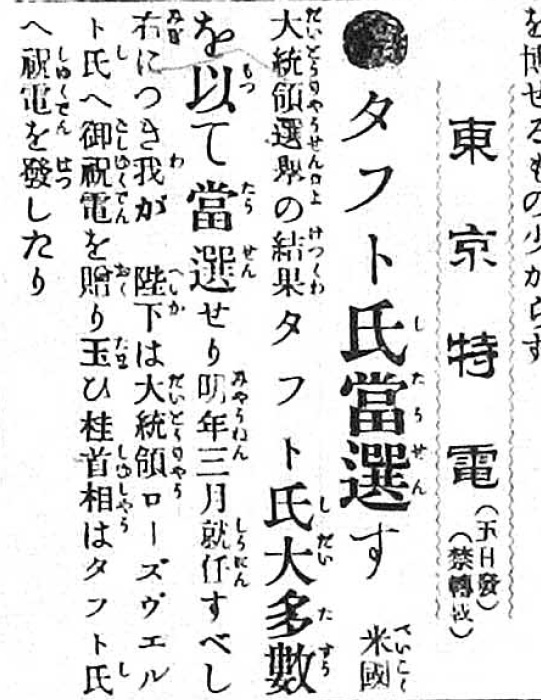 を博せるもの少からず
東京特電（五日發）（禁轉載）
●タフト氏當選す　米國
大統領選擧の結果タフト氏大多數
を以て當選せり明年三月就任すべし
右につき我が　陛下は大統領ローズヴエル
ト氏へ御祝電を贈り玉ひ桂首相はタフト氏
へ祝電を發したり